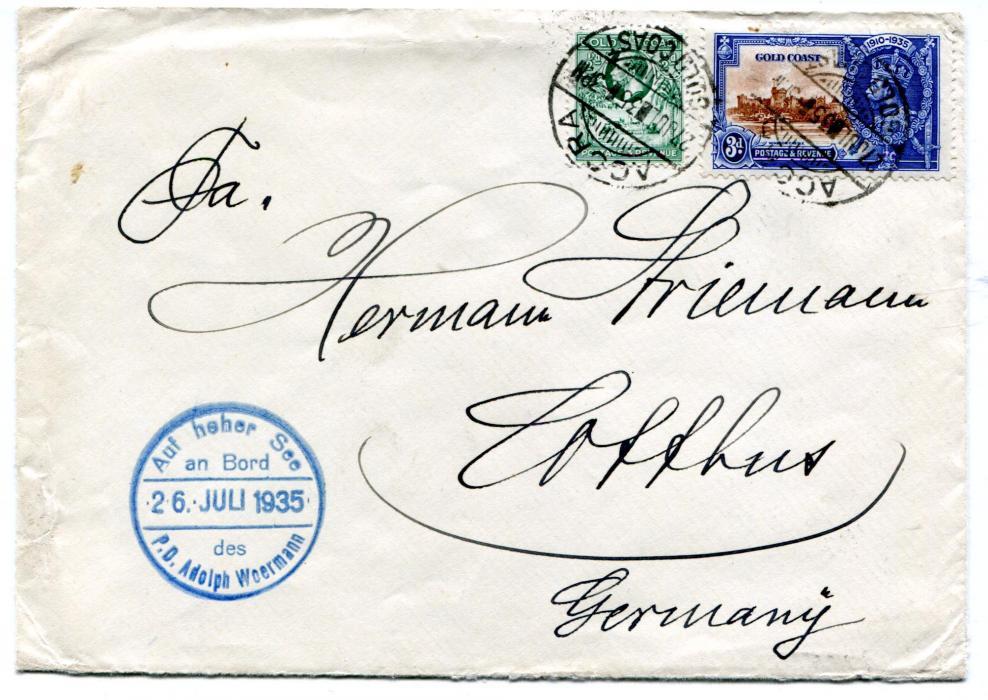 GOLD COAST
REVENUE
1910-1935
GOLD COAST
3d
POSTAGE & REVENUE
ACCRA
GOLD COAST
ACCRA
Fa.
Hermann Striemann
Cottbus
Germany
Auf hoher See
an Bord
26. JULI 1935
des
P.D. Adolph Woermann